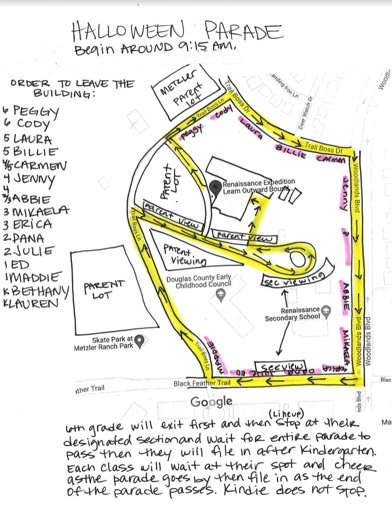 HALLOWEEN PARADE
Begin AROUND 9:15 AM.
ORDER TO LEAVE THE
BUILDING:
6 PEGGY
6 CODY
5 LAURA
5 BILLIE
4/5 CARMEN
4 JENNY
4
3/ABBIE
3 MIKAELA
3 ERICA
2 DANA
2 JULIE
1 ED
1 MADDIE
K BETHANY
K LAUREN
METZLER
PARENT
LOT
Trail Boss Ln
Trail Boss Dr
Peggy
Cody
Laura
BILLIE
Carmen
Jenny
ABBIE
MIKAELA
ERICA
DANA
JULIE
ED
MADDIE
Woodlands Blvd
Woodlands Blvd
Woodlands Blvd
PARENT
LOT
Renaissance Expedition
Learn Outward Bound
parent view
parent view
PARENT
VIEWING
sec viewing
Douglas County Early
Childhood Council
Renaissance
Secondary School
PARENT
LOT
Skate Park at
Metzler Ranch Park
Trail Boss Ln
sec view
Black Feather Trail
ather Trail
Google
6th grade will exit first and then stop at their (Lineup)
designated section and wait for entire parade to
pass then they will file in after Kindergarten.
Each class will wait at their spot and cheer
as the parade goes by then file in as the end
of the parade passes. Kindie does not stop.